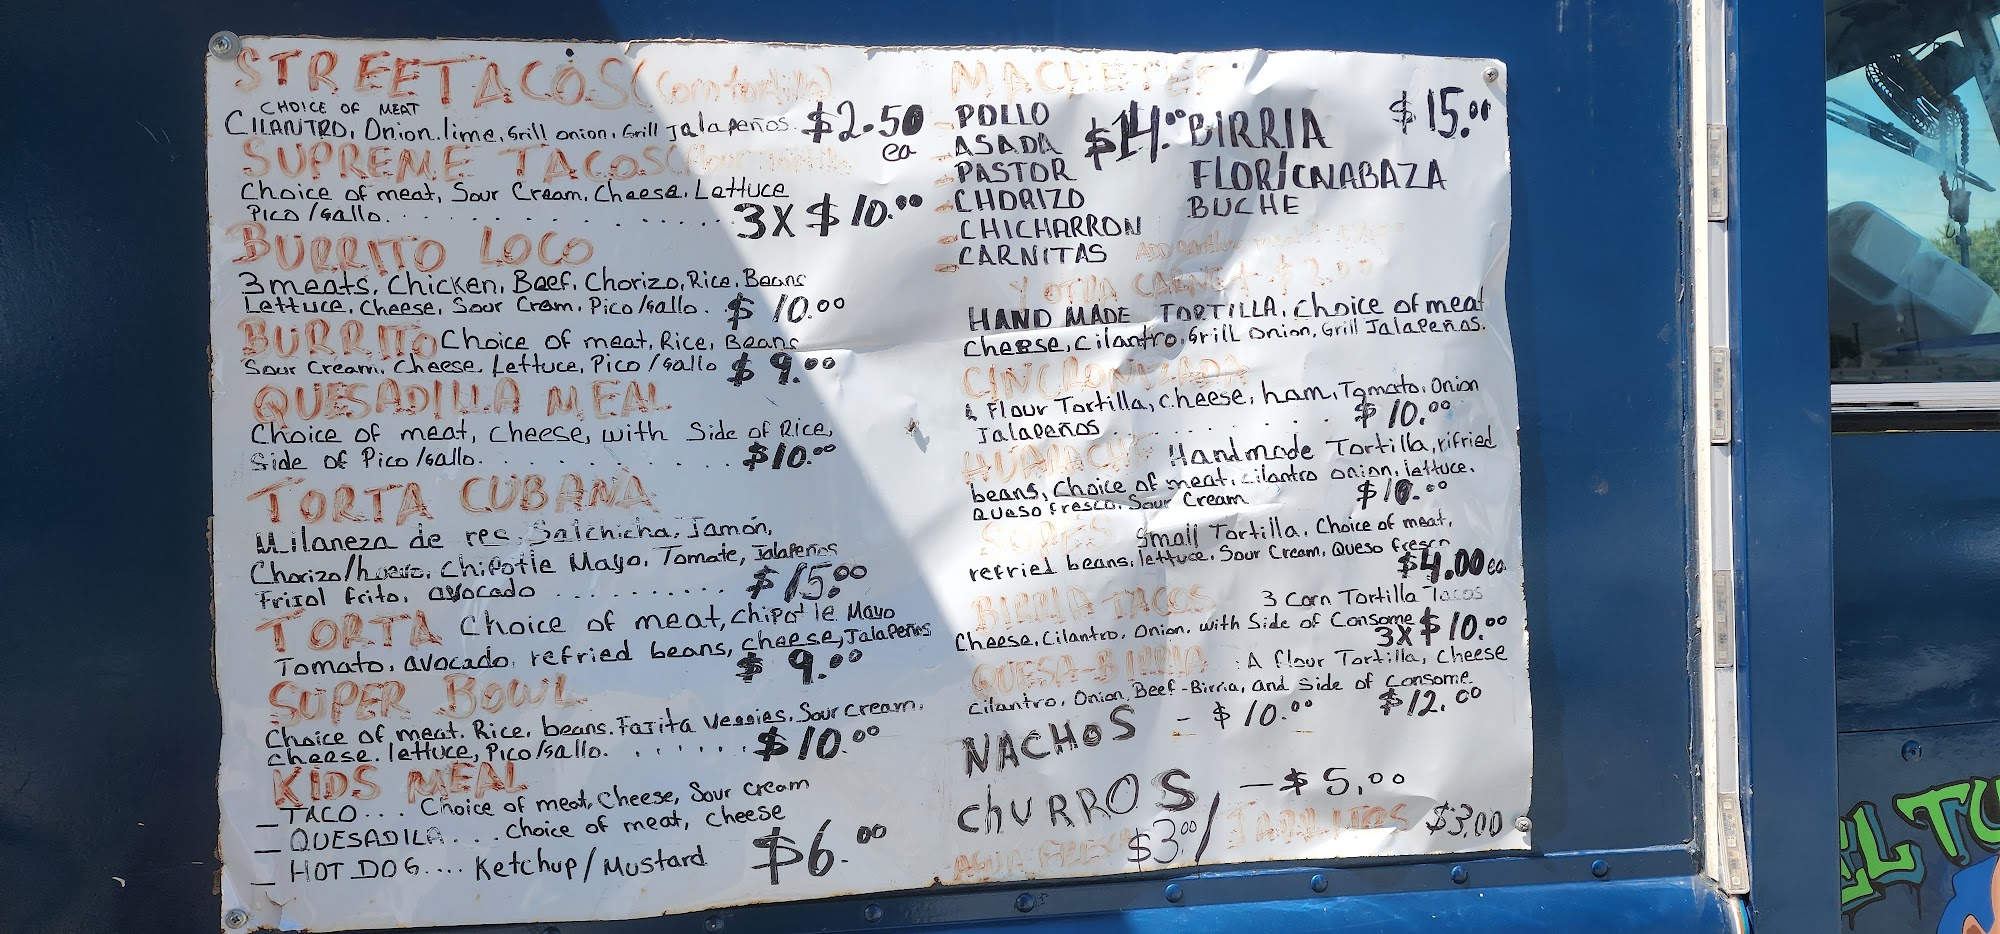 STREETACOS (Corn tortilla)
CHOICE OF MEAT
CILANTRO, Onion, lime, Grill onion, Grill Jalapeños. $2.50
ea
SUPREME TACOS (
Choice of meat, Sour Cream, Cheese, Lettuce
Pico/Gallo. . . . . . . . . . . . . 3X $10.00
BURRITO LOCO
3 meats, Chicken, Beef, Chorizo, Rice, Beans
Lettuce, Cheese, Sour Cram, Pico/Gallo. . $10.00
BURRITO Choice of meat, Rice, Beans
Sour Cream, Cheese, Lettuce, Pico/Gallo $9.00
QUESADILLA MEAL
Choice of meat, cheese, with Side of Rice,
Side of Pico/Gallo. . . . . . . . . . $10.00
TORTA CUBANA
Milaneza de res, Salchicha, Jamón,
Chorizo/huevo, Chipotle Mayo, Tomate, Jalapeños
Frijol frito, avocado . . . . . . . . . . $15.00
TORTA Choice of meat, Chipotle Mayo
Tomato, avocado, refried beans, cheese, Jalapeños
$9.00
SUPER BOWL
Choice of meat, Rice, beans, Fajita Veggies, Sour cream,
cheese, lettuce, Pico/Gallo. . . . . . . $10.00
KIDS MEAL
_ TACO... Choice of meat, Cheese, Sour cream
_ QUESADILA.... Choice of meat, Cheese
_ HOT DOG.... Ketchup/Mustard $6.00
MACHETES
- POLLO
- ASADA
- PASTOR
- CHORIZO
- CHICHARRON
- CARNITAS
$14.00
BIRRIA $15.00
FLOR/CALABAZA
BUCHE
ADD another meat
Y OTRA CARNE + $2.00
HAND MADE TORTILLA, Choice of meat
Cheese, Cilantro, Grill Onion, Grill Jalapeños.
CINCRONIZADA
Flour Tortilla, cheese, ham, Tomato, Onion
Jalapeños . . . . . . . . . . . $10.00
HUARACHE Handmade Tortilla, rifried
beans, Choice of meat, cilantro onion, lettuce,
Queso Fresco, Sour Cream $10.00
SOPES Small Tortilla, Choice of meat,
refried beans, lettuce, Sour Cream, Queso fresco
$4.00 ea
BIRRIA TACOS 3 Corn Tortilla Tacos
Cheese, Cilantro, Onion, with Side of Consome
3X $10.00
QUESA-BIRRIA . A flour Tortilla, Cheese
Cilantro, Onion, Beef-Birria, and Side of Consome
$12.00
NACHOS - $10.00
CHURROS - $5.00
AGUA FRESCA $3.00 / JARRITOS $3.00
EL TU